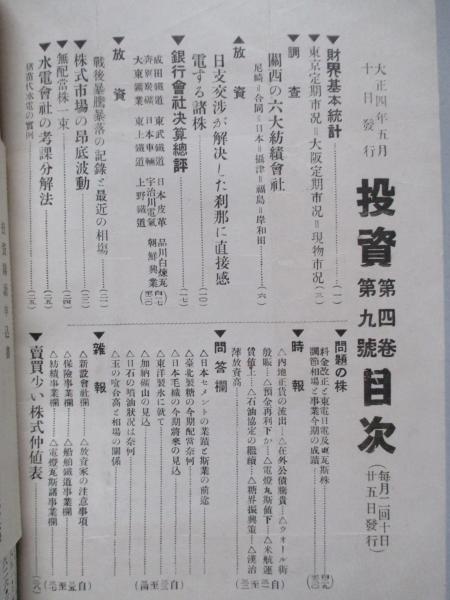 大正四年五月
十日發行
投資 第四卷 第九號 目次
(毎月二回十日
廿五日發行)
▼財界基本統計(一)
東京定期市況=大阪定期市況=現物市況(三)
▼調査
關西の六大紡績會社
尼崎=合同=日本=攝津=福島=岸和田(六)
▲放資
日支交渉が解決した刹那に直接感
電する諸株(一〇)
▼銀行會社決算總評(一七)
成田鐵道 東武鐵道 日本皮革 品川白煉瓦
日本車輛 宇治川電氣 朝鮮興業
大東鑛業 東上鐵道 上野鐵道
▼放資
戰後暴騰暴落の記錄と最近の相場(二一)
▼株式市場の昂底波動
▼無配當株一束(二四)
▼水電會社の考課分解法(二五)
猪苗代水電の實例
▼問題の株
料金改正と東電日電及東瓦斯株
調節相場と事業今期の成蹟
▼時報
△內地正貨の流出△在外公債騰貴△ウォール街
殷賑△預金再利下か△電燈瓦斯値下△米航運
賃値上△石油協定の繼續△糖界振興策△漢冶
萍放資高
▼問答欄
△日本セメントの業蹟と斯業の前途
△臺北製糖の今期配當奈何
△日本毛織の今期將來の見込
△東洋製氷に就て
△加納鑛山の見込
△日石の噴油狀況は奈何
△玉の喰合高と相場の關係
▼雜報
△新設會社欄 △放資家の注意事項
△保險事業欄 △船舶鐵道事業欄
△紡績事業欄 △電燈瓦斯諸事業欄
▼賣買少い株式仲値表(六八)